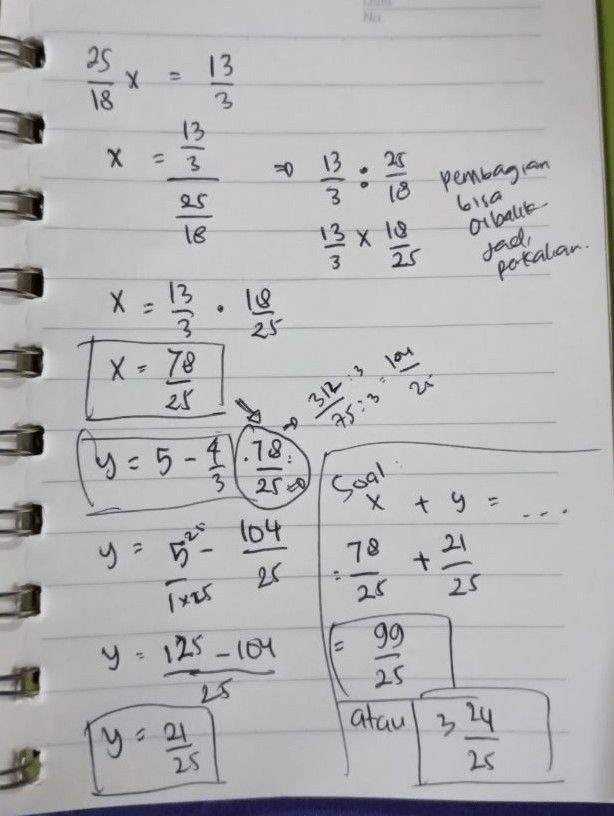 No.
25/18 x = 13/3
x = 13/3 / 25/18 ⇒ 13/3 : 25/18
13/3 x 18/25
pembagian
bisa
dibalik
jadi
perkalian.
x = 13/3 · 18/25
x = 78/25
→ 312/75 :3/:3 = 104/25
y = 5 - 4/3 · 78/25 ⇒
y = 5/1 x25/x25 - 104/25
y = 125 - 104 / 25
y = 21/25
Soal:
x + y = ...
= 78/25 + 21/25
= 99/25
atau 3 24/25